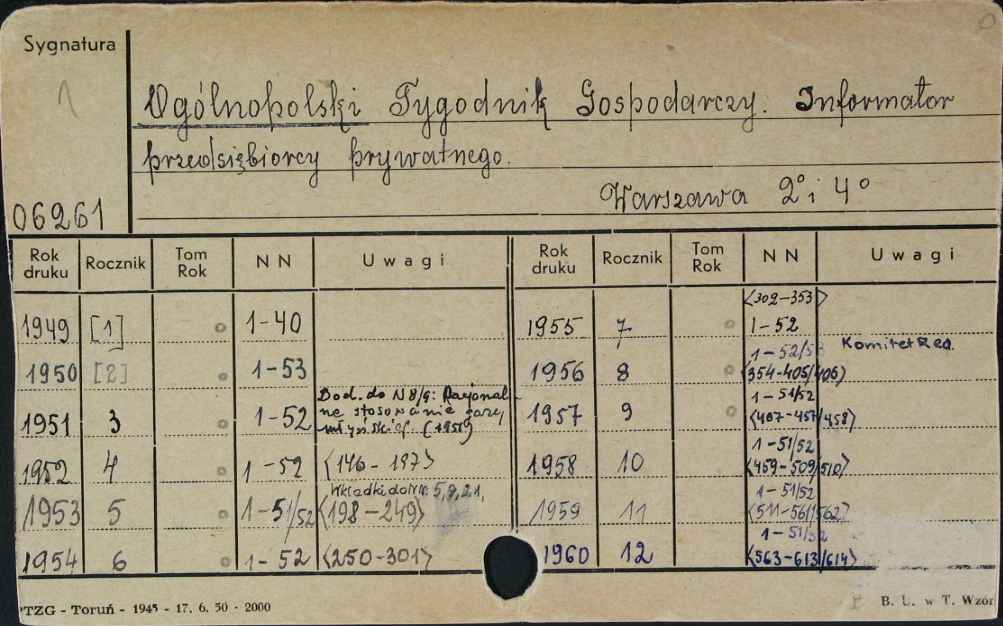 Sygnatura
1
Ogólnopolski Tygodnik Gospodarczy. Informator
przedsiębiorcy prywatnego.
Warszawa 2° i 4°
06261
Rok druku Rocznik Tom Rok NN Uwagi Rok druku Rocznik Tom Rok NN Uwagi
1949 [1] 1-40
1950 [2] 1-53
1951 3 1-52 Dod. do N 8/9: Racjonal-
ne stosowanie
(1951)
1952 4 1-52 <146-197>
Wkładki do Nr. 5,8,21,
1953 5 1-51/52 <198-249>
1954 6 1-52 <250-301>
<302-353>
1955 7 1-52
1-52/53 Komitet Red.
1956 8 <354-405/406>
1-51/52
1957 9 <407-457/458>
1-51/52
1958 10 <459-509/510>
1-51/52
1959 11 <511-561/562>
1-51/52
1960 12 <563-613/614>
TZG - Toruń - 1945 - 17. 6. 50 - 2000
B. U. w T. Wzór